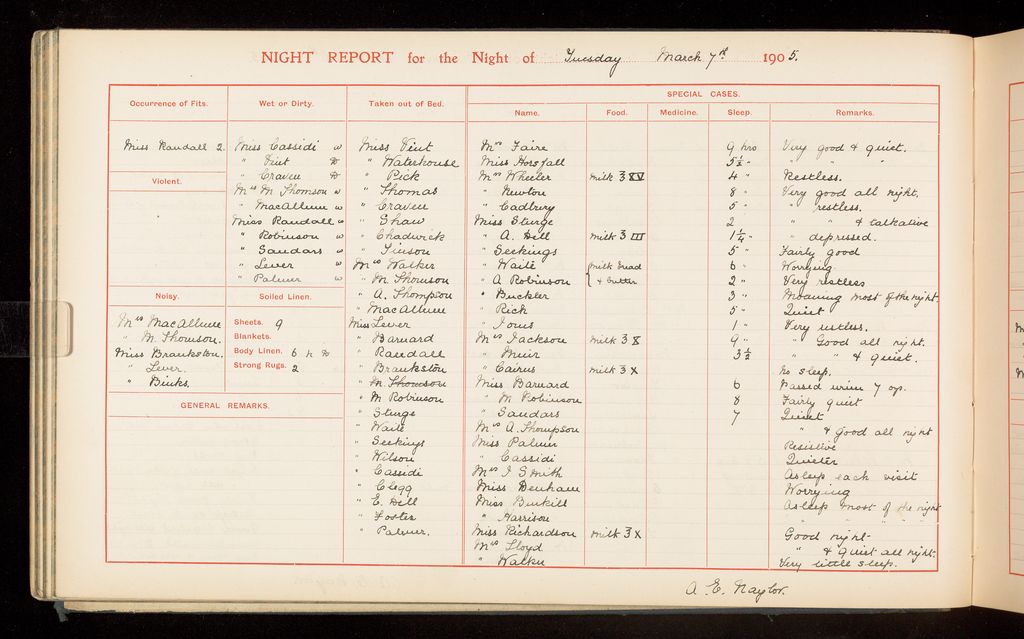 NIGHT REPORT for the Night of Tuesday March 7th 1905.
Occurrence of Fits.
Miss Randall 2.
Violent.
Noisy.
Mrs MacAllum
" M. Thomson.
Miss Brankston.
" Lever.
" Binks.
Wet or Dirty.
Miss Cassidi w
" Vint
" Craven
Mrs M Thomson w
" MacAllum w
Miss Randall w
" Robinson w
" Sandars w
" Lever w
" Palmer w
Soiled Linen.
Sheets. 9
Blankets.
Body Linen. 6
Strong Rugs. 2
GENERAL REMARKS.
Taken out of Bed.
Miss Vint
" Waterhouse
" Pick
" Thomas
" Craven
" Shaw
" Chadwick
" Tinson
Mrs Walker
" M. Thomson
" A. Thompson
" MacAllum
Miss Lever
" Barnard
" Randall
" Brankston
" M. Thomson
" M Robinson
" Sturge
" Waite
" Seekings
" Wilson
" Cassidi
" Clegg
" E. Hill
" Foster
" Palmer.
SPECIAL CASES.
Name. Food. Medicine. Sleep. Remarks.
Mrs Faire 9 hrs Very good & quiet.
Miss Horsfall 5½ " " " "
Mrs Wheeler Milk ℥ XV 4 " Restless.
" Newton 8 " Very good all night.
" Cadbury 5 " " restless.
Miss Sturge 2 " " & talkative
" A. Hill Milk ℥ III 1¼ " " depressed.
" Seekings 5 " Fairly good
" Waite Milk bread 6 " Worrying
" A Robinson & butter 2 " Very restless
" Buckler 3 " Moaning most of the night.
" Pick 5 " Quiet
" Jones 1 " Very restless.
Mrs Jackson Milk ℥ X 9 " " Good all night.
" Muir 3½ " " & quiet.
" Cairns Milk ℥ X No sleep.
Miss Barnard 6 Passed urine 7 oz.
" M Robinson 8 Fairly quiet
" Sandars 7 Quiet
Mrs A. Thompson " & good all night
Miss Palmer Resistive
" Cassidi Quieter
Mrs J Smith Asleep each visit
Miss Denham Worrying
Miss Binkill Asleep most of the night
" Harrison " " " "
Miss Richardson Milk ℥ X Good night
Mrs Lloyd " & quiet all night.
" Walker Very little sleep.
A. E. Naylor.